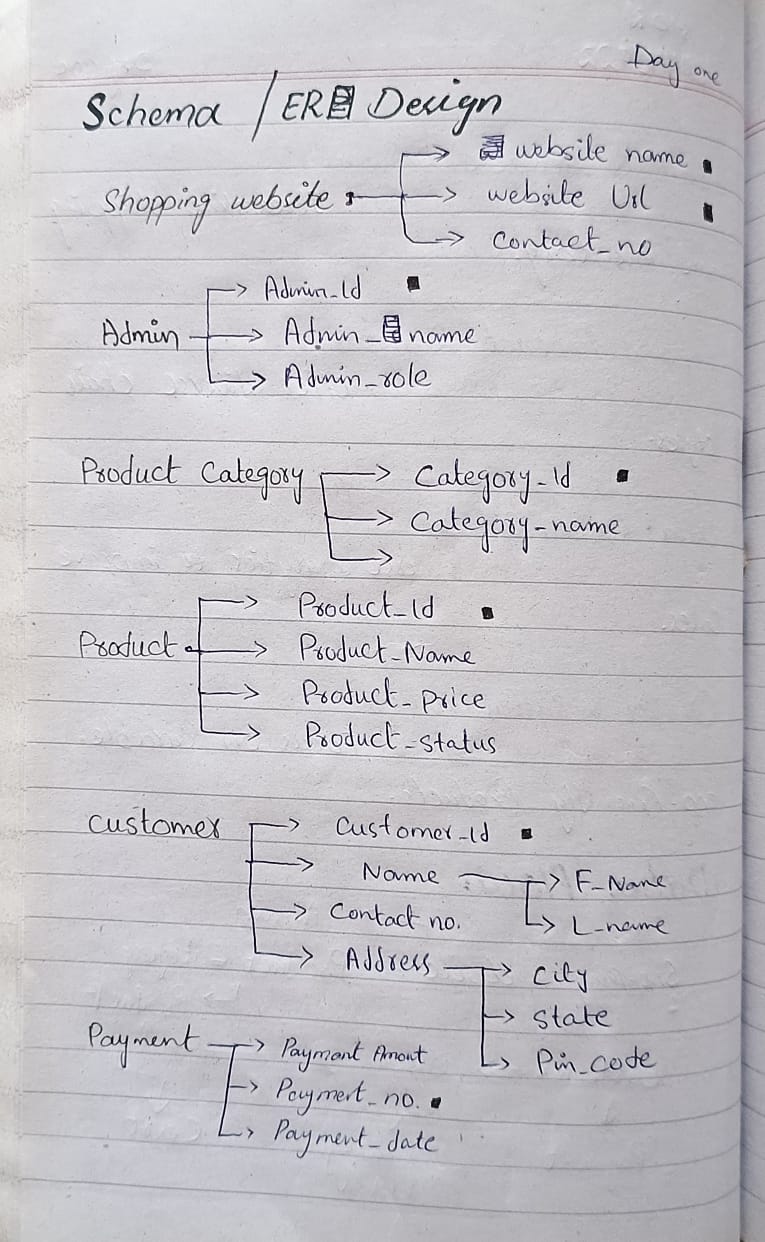 Day one
Schema / ER Design
website name
Shopping website
website Url
Contact_no
Admin_Id
Admin
Admin_name
Admin_role
Product Category
Category_Id
Category_name
Product_Id
Product
Product_Name
Product_price
Product_status
Customer
Customer_Id
Name
F_Name
Contact no.
L_name
Address
City
State
Pin_code
Payment
Payment Amout
Payment_no.
Payment_date